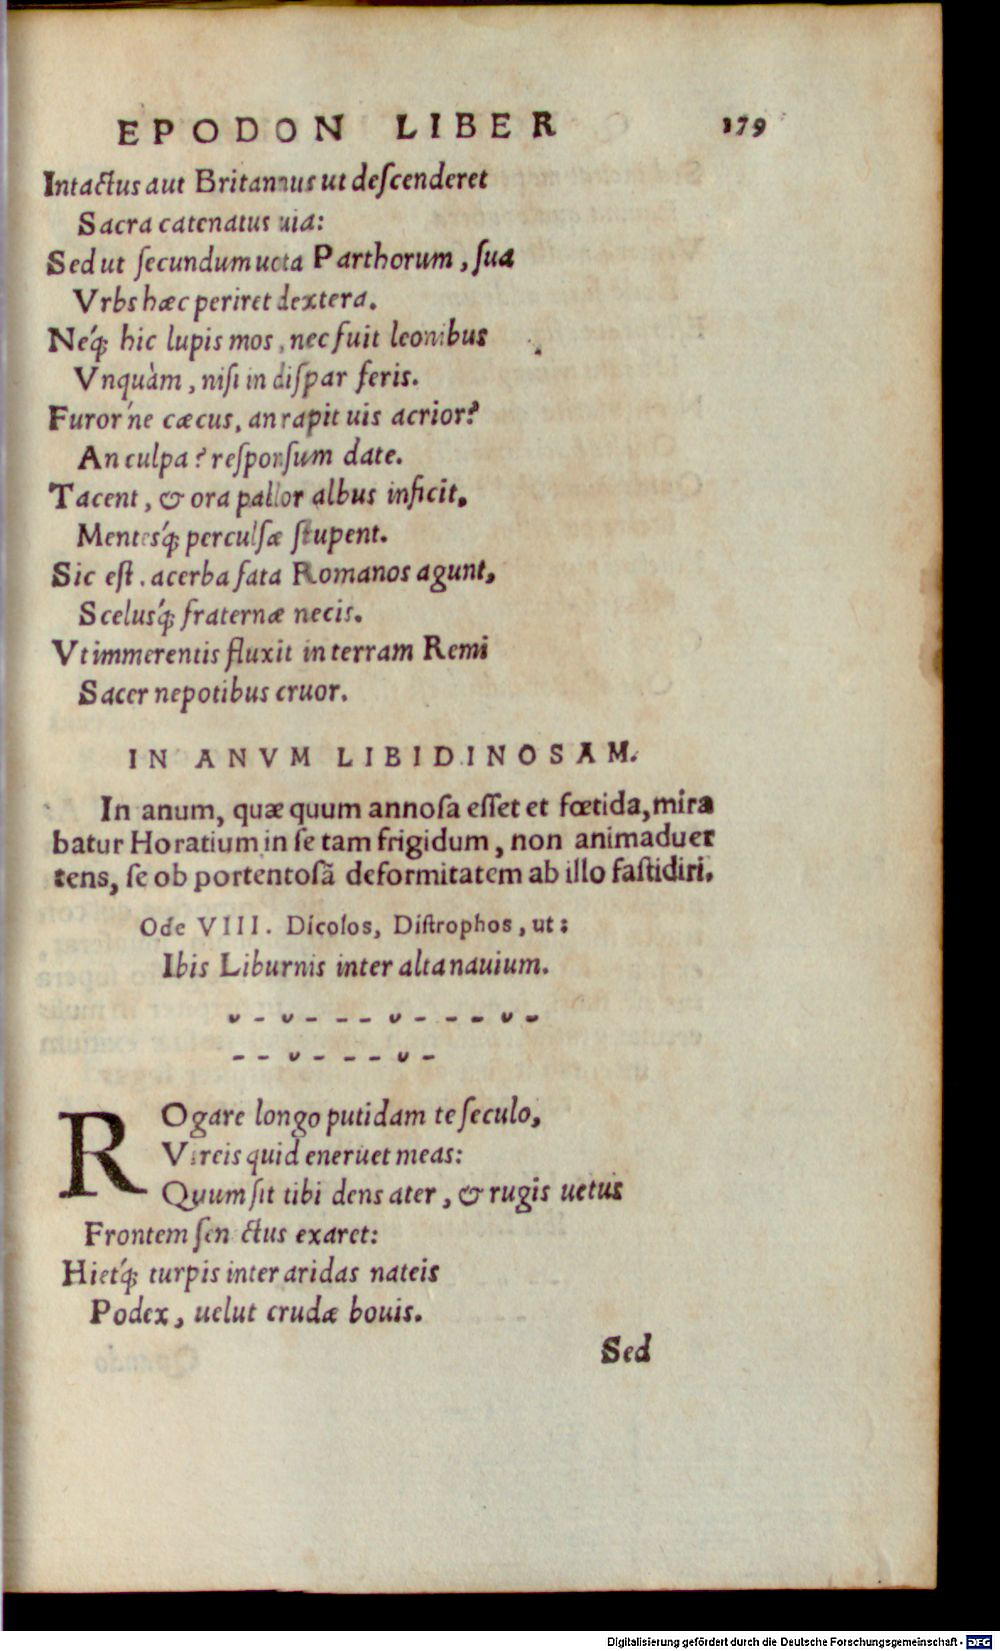 EPODON LIBER 179
Intactus aut Britannus ut deſcenderet
Sacra catenatus uia:
Sed ut ſecundum uota Parthorum, ſua
Vrbs hæc periret dextera.
Neq́; hic lupis mos, nec fuit leonibus
Vnquàm, niſi in diſpar feris.
Furor'ne cæcus, an rapit uis acrior?
An culpa? reſponſum date.
Tacent, & ora pallor albus inficit,
Mentesq́; perculſæ ſtupent.
Sic eſt. acerba fata Romanos agunt,
Scelusq́; fraternæ necis.
Vt immerentis fluxit in terram Remi
Sacer nepotibus cruor.
IN ANVM LIBIDINOSAM.
In anum, quæ quum annoſa eſſet et fœtida, mira
batur Horatium in ſe tam frigidum, non animaduer
tens, ſe ob portentoſã deformitatem ab illo faſtidiri.
Ode VIII. Dicolos, Diſtrophos, ut:
Ibis Liburnis inter alta nauium.
ROgare longo putidam te ſeculo,
Vireis quid eneruet meas:
Quum ſit tibi dens ater, & rugis uetus
Frontem ſenectus exaret:
Hietq́; turpis inter aridas nateis
Podex, uelut crudæ bouis.
Sed
Digitalisierung gefördert durch die Deutsche Forschungsgemeinschaft - DFG